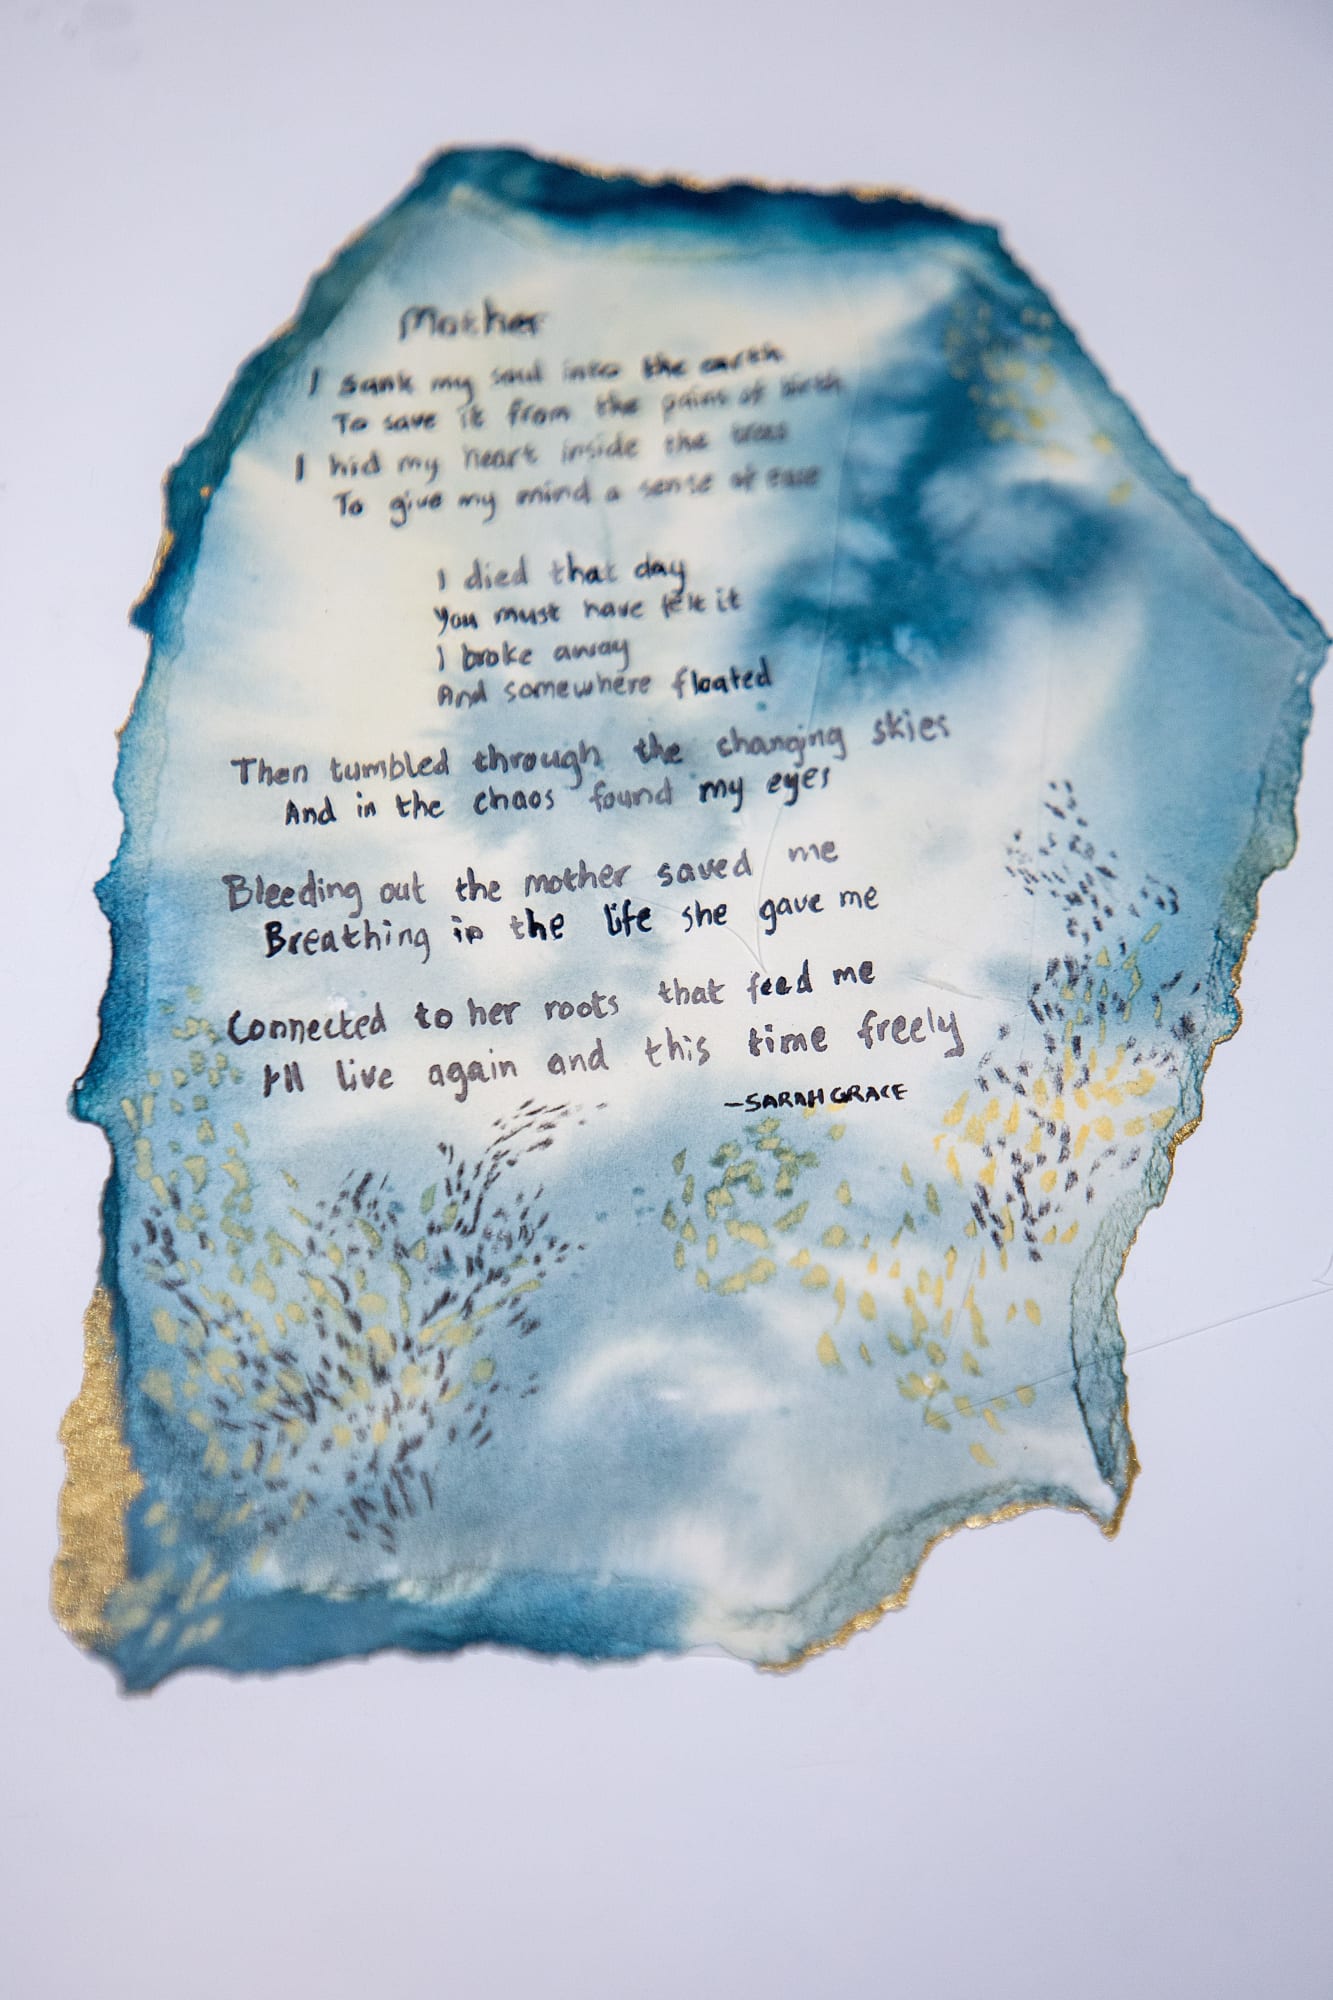 Mother
I sank my soul into the earth
To save it from the pains of birth
I hid my heart inside the trees
To give my mind a sense of ease
I died that day
You must have felt it
I broke away
And somewhere floated
Then tumbled through the changing skies
And in the chaos found my eyes
Bleeding out the mother saved me
Breathing in the life she gave me
Connected to her roots that feed me
I'll live again and this time freely
-SARAH GRACE